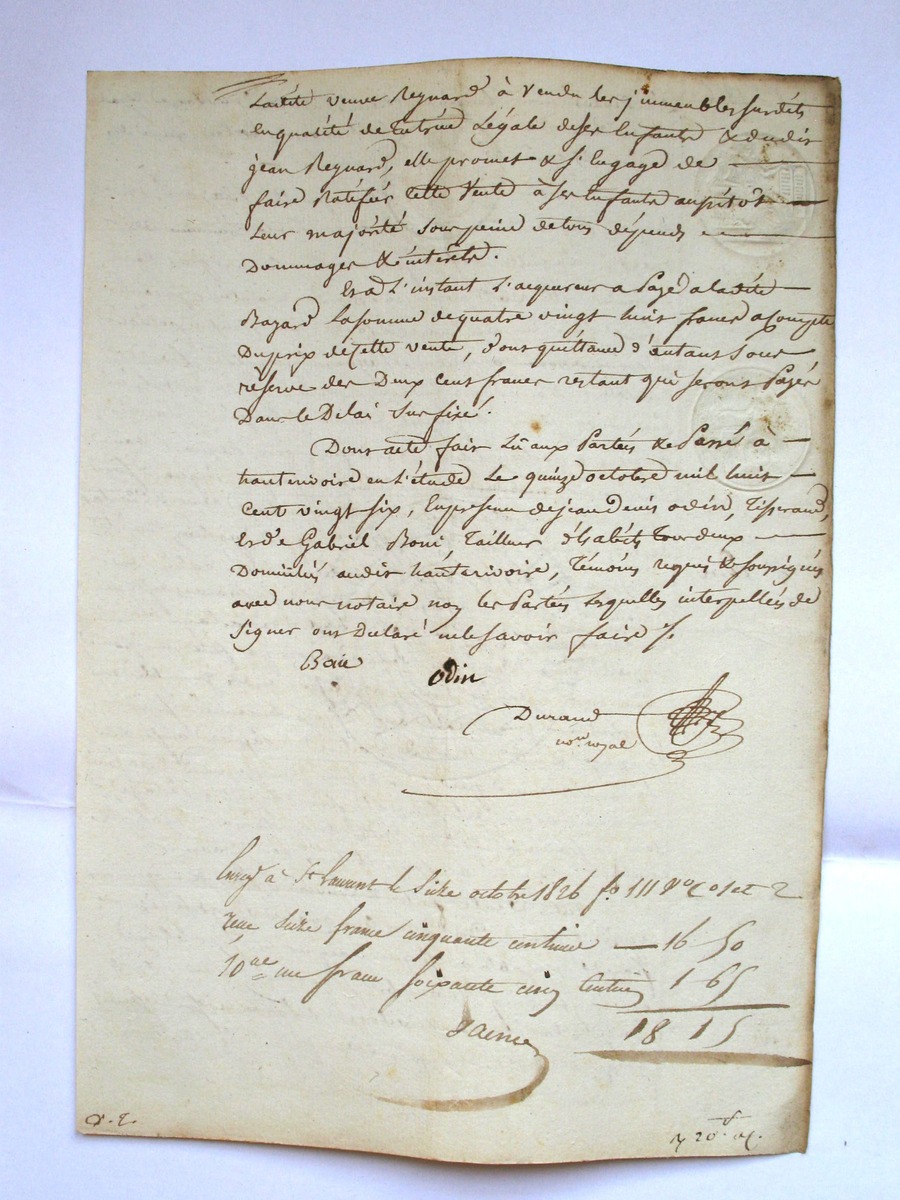 Ladite veuve Reynard à vendu les jmmeubles susdits
En qualité de Tutrice Légale de ses Enfants & dudit
jean Reynard, elle promet & s'Engage de
faire Ratifier Cette Vente à ses Enfants aussitôt
Leur majorité sous peine de tous dépends
Dommages & interêts.
Et à L'instant L'acquereur a Payé a ladite
Bazard La somme de quatre vingt huit francs a Compte
Du prix de Cette vente, dont quittance d'autant sous
réserve des Deux cent francs restant qui seront Payés
Dans le Delai sus fixé.
Dont acte fait Lû aux Parties & Passé à
hauterivoire en L'étude Le quinze octobre mil huit
Cent vingt six, En présence de jean denis odin, Tisserand,
Et de Gabriel Boni, Tailleur d'habits Tous deux
Domiciliés audit hauterivoire, Témoins requis & soussignés
avec nous notaire non les Parties Lesquelles interpellées de
Signer ont Déclaré ne le savoir faire
Odin
Durand
no.re royal
Enreg à St Laurent le Seize octobre 1826 fo 111 Vo Co 1 et 2
reçu seize francs cinquante centimes 16 50
10me un franc soixante cinq Centimes 1 65
18 15